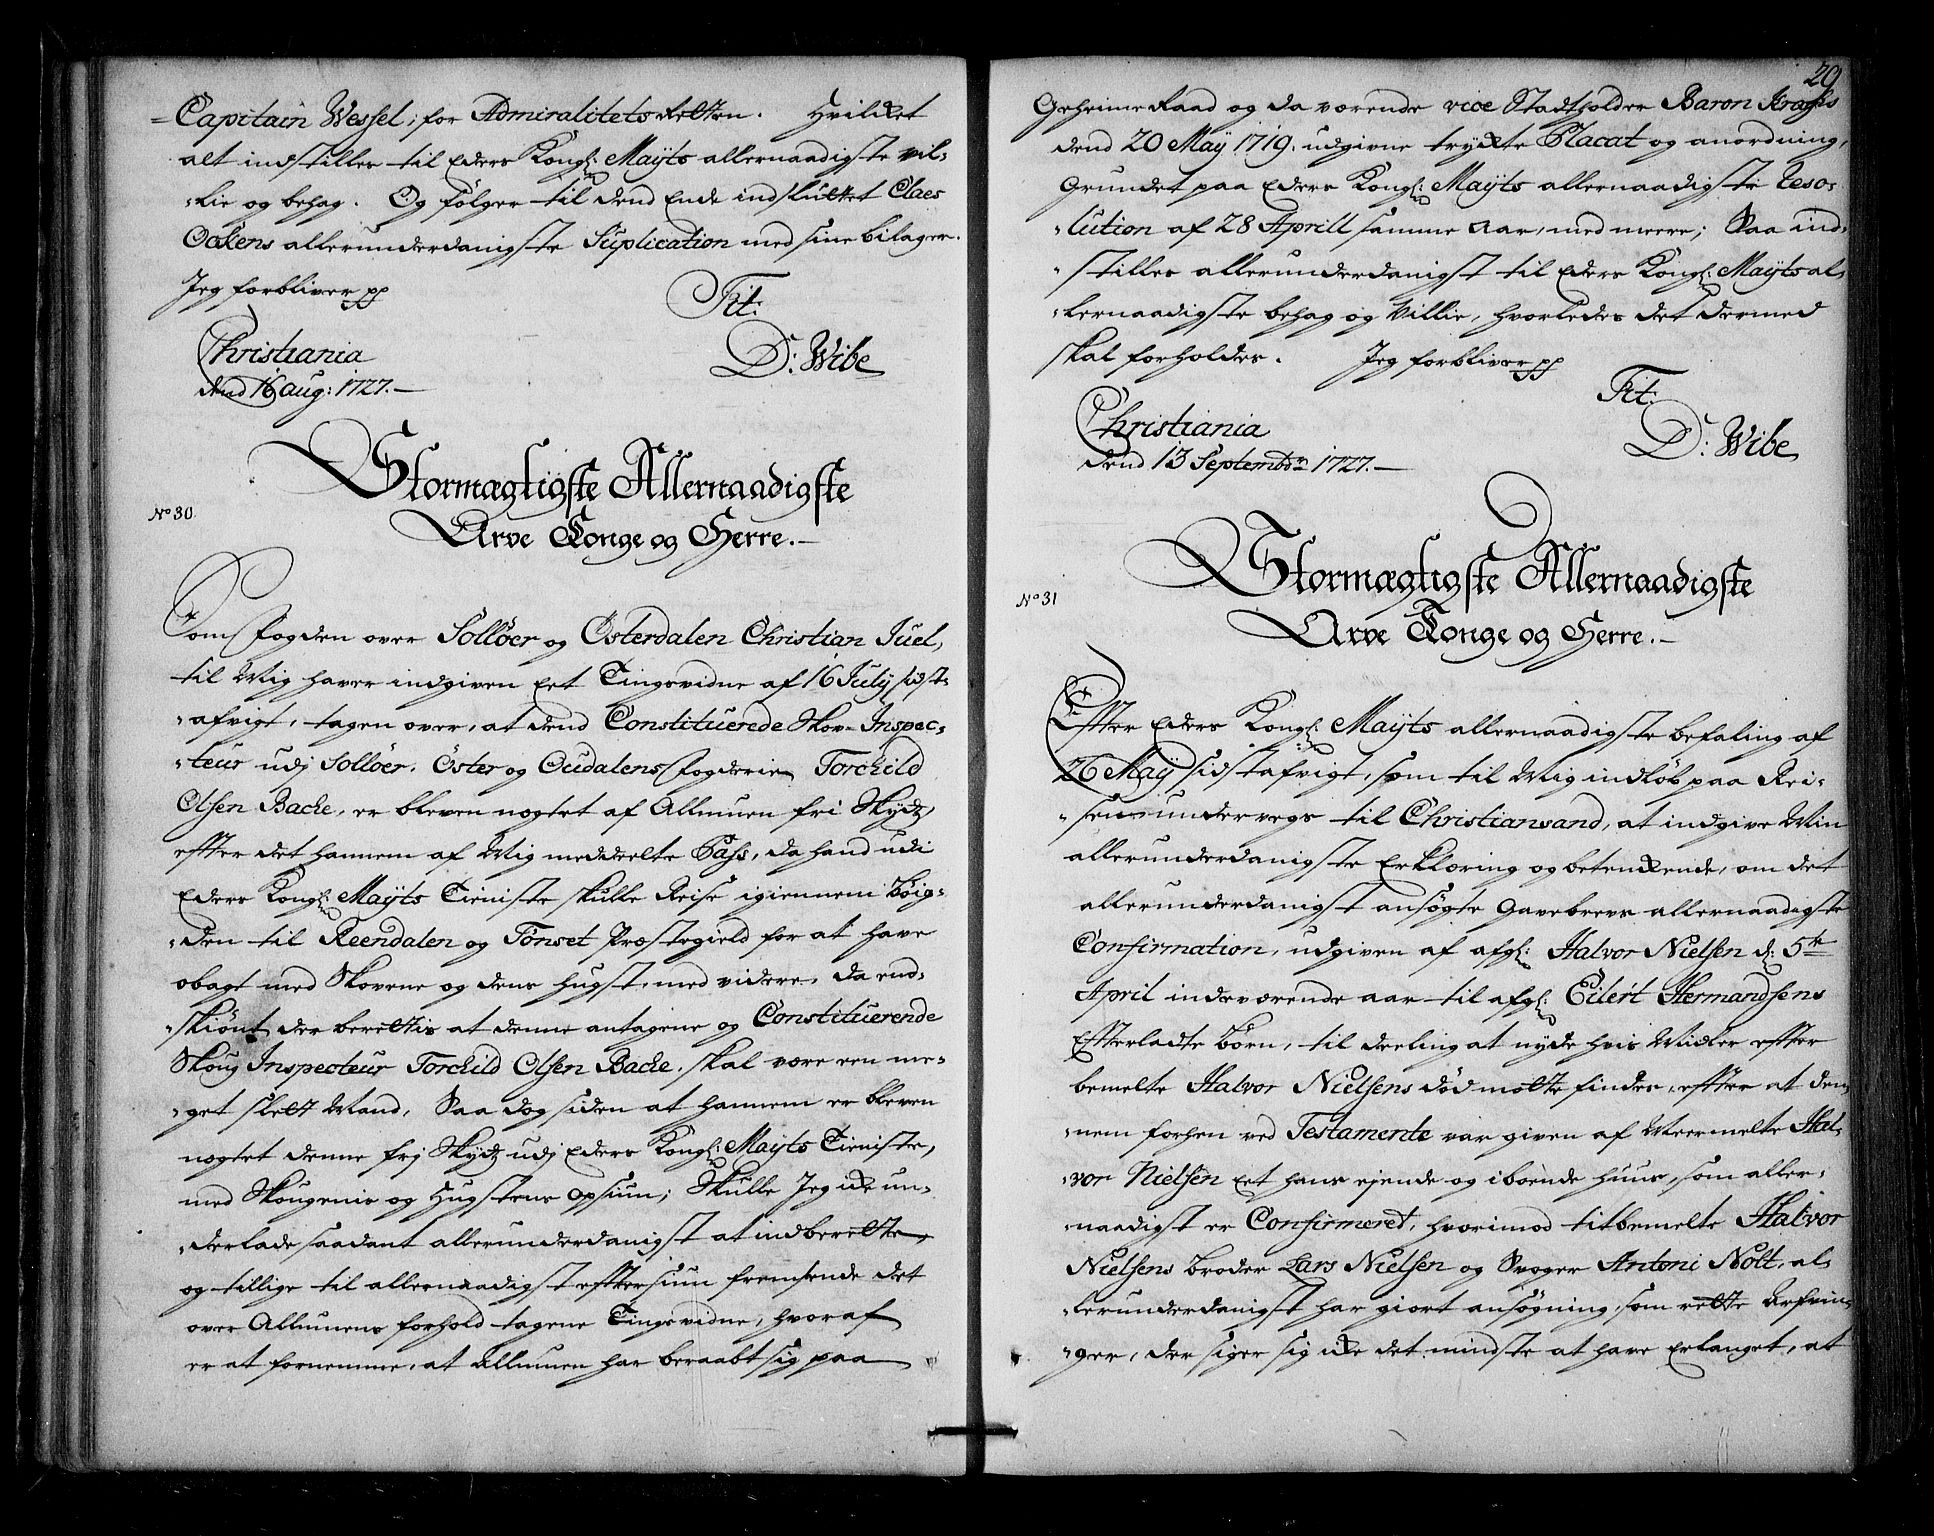 Capitain Wessel, for Admiralitets Retten. Hvilket
alt indstilles til Eders Kongl: Mayts allernaadigste vil-
-lie og behag. Og følger til dend Ende indsluttet Claes
Ockens allerunderdanigste Suplication med sine bilager.
Jeg forbliver pp
Tit:
Christiania
dend 16 aug: 1727.
D: Wibe
No 30.
Stormægtigste Allernaadigste
Arve Konge og Herre.
Som fogden over Solløer og Österdalen Christian Juel,
til Mig haver indgiven eet Tingsvidne af 16 July sidst-
-afvigt, tagen over, at dend Constituerede Skov-Inspec-
-teur udj Solløer, Öster og Oudalens fogderie Torchild
Olsen Bache, er bleven nægtet af Allmuen fri Skydz,
effter det hannem af Mig meddeelte Pass, da hand udi
Eders Kongl: Mayts Tieniste skulle Reise igiennem Böig-
-den til Reendalen og Tönset Præstegield for at have
obagt med Skovene og dens hugst med videre, da end-
-skiönt der berettis at denne antagene og Constituerende
Skoug Inspecteur Torchild Olsen Bache, skal være een me-
-get slett Mand, Saa dog siden at hannem er bleven
nægtet denne frj Skydz udj Eders Kongl: Mayts Tieniste,
med Skougenis og Hugstens opsiun; Skulle Jeg icke un-
-derlade saadant allerunderdanigst at indberette,
og tillige til allernaadigst efftersiun fremsende det
over Allmuens forhold tagene Tingsvidne, hvoraf
er at fornemme, at Allmuen har beraabt sig paa
29
Geheime Raad og da værende vice Stadtholder Baron Krags
dend 20 May 1719. udgivne tryckte Placat og anordning,
Grundet paa Eders Kongl: Mayts allernaadigste Reso-
-lution af 28 Aprill samme aar, med meere; Saa ind-
-stilles allerunderdanigst til Eders Kongl: Mayts al-
-lernaadigste behag og Villie, hvorledes det dermed
skal forholdes. Jeg forbliver pp
Tit:
Christiania
dend 13 Septembr 1727.
D: Wibe
No 31
Stormægtigste Allernaadigste
Arve Konge og Herre.
Effter Eders Kongl: Mayts allernaadigste befaling af
26 May sidstafvigt, som til Mig indløb paa Rei-
-sen underveys til Christiansand, at indgive Min
allerunderdanigste Erklæring og betenckende, om det
allerunderdanigst ansøgte Gavebrevs allernaadigste
Confirmation, udgiven af afgl: Halvor Nielsen d: 5te
April indeværende aar til afgl: Eilert Hermandsens
Effterladte Börn, til deeling at nyde hvis Midler effter
bemelte Halvor Nielsens död motte findes, effter at den-
-nem forhen ved Testamente var given af Meermelte Hal-
-vor Nielsen eet hans ejende og iboende huus, som aller-
-naadigst er Confirmeret, hvorimod titbemelte Halvor
Nielsens Broder Lars Nielsen og Svoger Antoni Nolt, al-
-lerunderdanigst har giort ansøgning, som rette Arfvin-
-ger, der siger sig icke det mindste at have erlanget, at